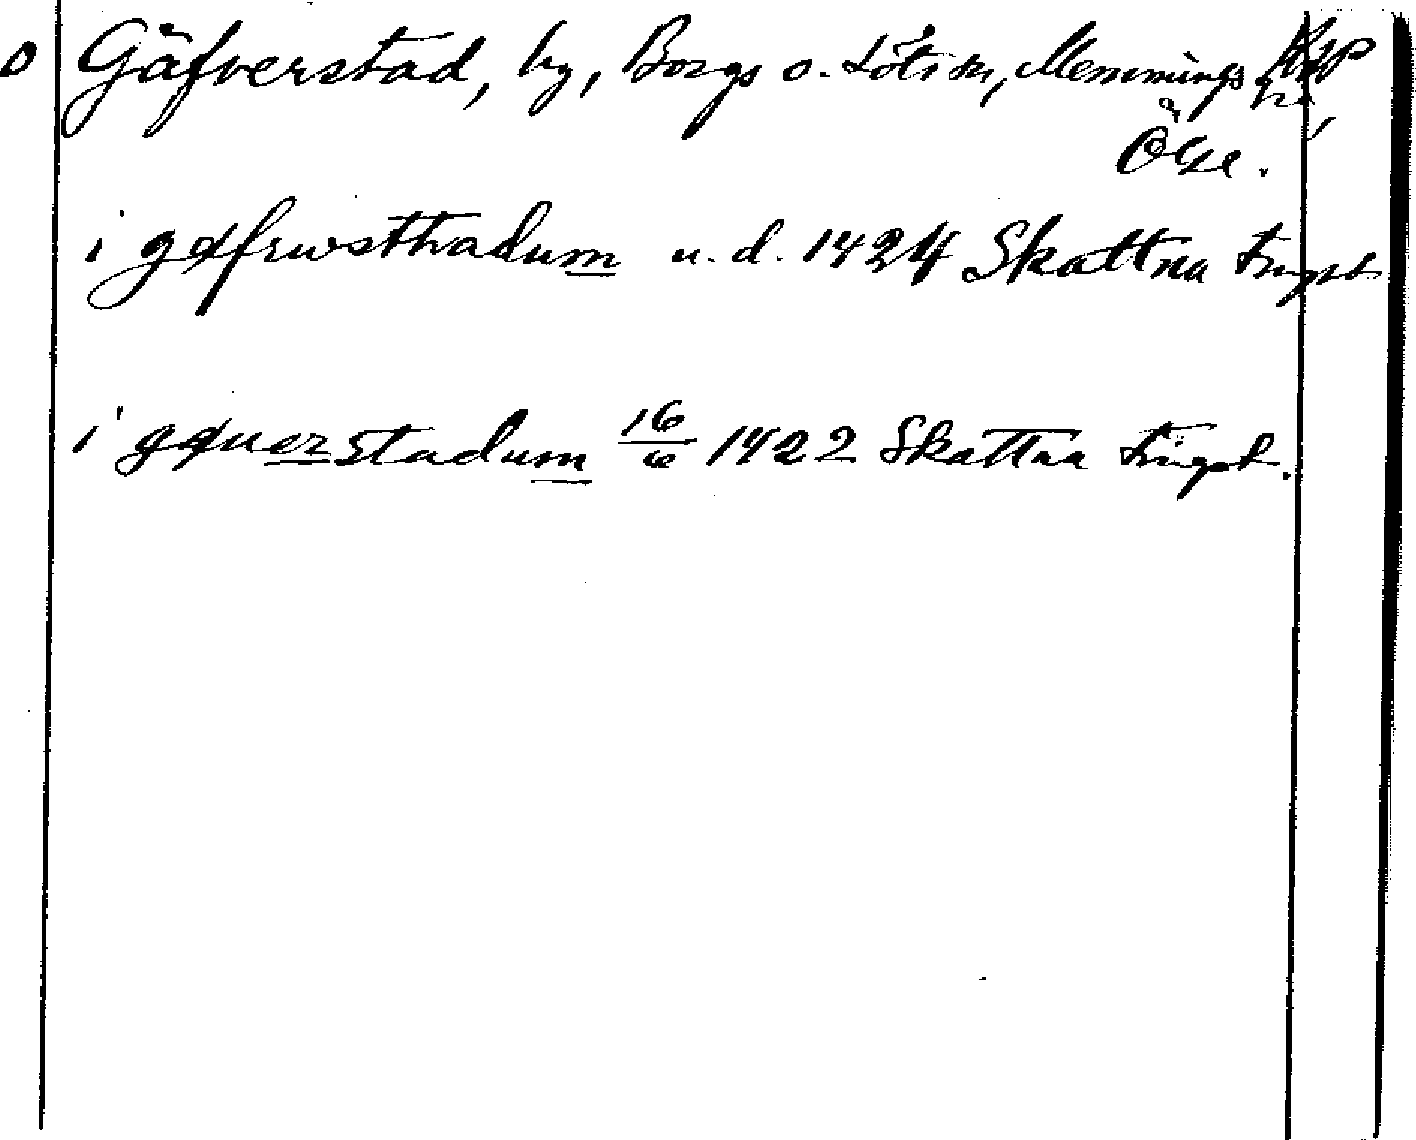 o Gäfverstad, by, Borgs o. Löts sn, Memmings hrd,
Öge.
i gæfrwsthadum u. d. 1424 Skattna tingsb
i gæuerstadum 16/6 1422 Skattna tingsb.